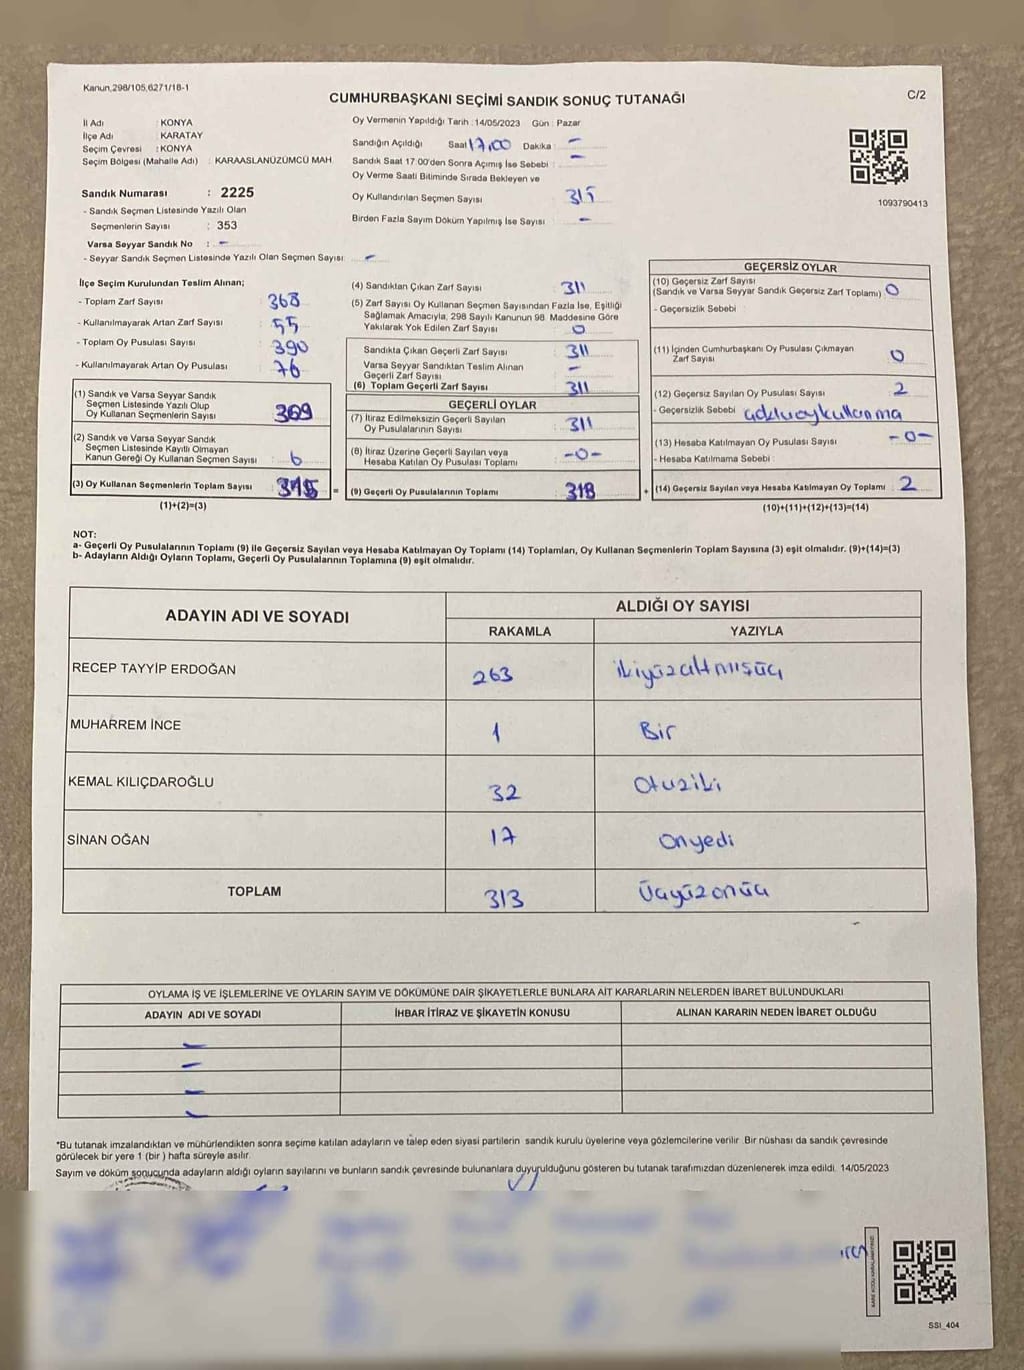 Kanun,298/105,6271/18-1
C/2
CUMHURBAŞKANI SEÇİMİ SANDIK SONUÇ TUTANAĞI
İl Adı : KONYA
İlçe Adı : KARATAY
Seçim Çevresi : KONYA
Seçim Bölgesi (Mahalle Adı) : KARAASLANÜZÜMCÜ MAH.
Sandık Numarası : 2225
- Sandık Seçmen Listesinde Yazılı Olan
Seçmenlerin Sayısı : 353
Varsa Seyyar Sandık No : -
- Seyyar Sandık Seçmen Listesinde Yazılı Olan Seçmen Sayısı: -
Oy Vermenin Yapıldığı Tarih :14/05/2023 Gün : Pazar
Sandığın Açıldığı Saat 17,00 Dakika : -
Sandık Saat 17:00'den Sonra Açımış İse Sebebi : -
Oy Verme Saati Bitiminde Sırada Bekleyen ve
Oy Kullandırılan Seçmen Sayısı 315
Birden Fazla Sayım Döküm Yapılmış İse Sayısı -
1093790413
İlçe Seçim Kurulundan Teslim Alınan;
- Toplam Zarf Sayısı 368
- Kullanılmayarak Artan Zarf Sayısı 55
- Toplam Oy Pusulası Sayısı 390
- Kullanılmayarak Artan Oy Pusulası 76
(1) Sandık ve Varsa Seyyar Sandık
Seçmen Listesinde Yazılı Olup
Oy Kullanan Seçmenlerin Sayısı
(2) Sandık ve Varsa Seyyar Sandık
Seçmen Listesinde Kayıtlı Olmayan
Kanun Gereği Oy Kullanan Seçmen Sayısı : 6
(3) Oy Kullanan Seçmenlerin Toplam Sayısı
(1)+(2)=(3)
(4) Sandıktan Çıkan Zarf Sayısı : 311
(5) Zarf Sayısı Oy Kullanan Seçmen Sayısından Fazla İse, Eşitliği
Sağlamak Amacıyla, 298 Sayılı Kanunun 98. Maddesine Göre
Yakılarak Yok Edilen Zarf Sayısı : 0
Sandıkta Çıkan Geçerli Zarf Sayısı : 311
Varsa Seyyar Sandıktan Teslim Alınan
Geçerli Zarf Sayısı : -
(6) Toplam Geçerli Zarf Sayısı : 311
GEÇERLİ OYLAR
(7) İtiraz Edilmeksizin Geçerli Sayılan
Oy Pusulalarının Sayısı : 311
(8) İtiraz Üzerine Geçerli Sayılan veya
Hesaba Katılan Oy Pusulası Toplamı : -0-
= (9) Geçerli Oy Pusulalarının Toplamı
GEÇERSİZ OYLAR
(10) Geçersiz Zarf Sayısı
(Sandık ve Varsa Seyyar Sandık Geçersiz Zarf Toplamı) : 0
- Geçersizlik Sebebi :
(11) İçinden Cumhurbaşkanı Oy Pusulası Çıkmayan
Zarf Sayısı : 0
(12) Geçersiz Sayılan Oy Pusulası Sayısı : 2
- Geçersizlik Sebebi :
(13) Hesaba Katılmayan Oy Pusulası Sayısı : -0-
- Hesaba Katılmama Sebebi :
+ (14) Geçersiz Sayılan veya Hesaba Katılmayan Oy Toplamı : 2
(10)+(11)+(12)+(13)=(14)
NOT:
a- Geçerli Oy Pusulalarının Toplamı (9) ile Geçersiz Sayılan veya Hesaba Katılmayan Oy Toplamı (14) Toplamları, Oy Kullanan Seçmenlerin Toplam Sayısına (3) eşit olmalıdır. (9)+(14)=(3)
b- Adayların Aldığı Oyların Toplamı, Geçerli Oy Pusulalarının Toplamına (9) eşit olmalıdır.
ADAYIN ADI VE SOYADI ALDIĞI OY SAYISI
RAKAMLA YAZIYLA
RECEP TAYYİP ERDOĞAN 263 ikiyüzaltmışüç
MUHARREM İNCE 1 Bir
KEMAL KILIÇDAROĞLU 32 Otuziki
SİNAN OĞAN 17 onyedi
TOPLAM 313 Üçyüzonüç
OYLAMA İŞ VE İŞLEMLERİNE VE OYLARIN SAYIM VE DÖKÜMÜNE DAİR ŞİKAYETLERLE BUNLARA AİT KARARLARIN NELERDEN İBARET BULUNDUKLARI
ADAYIN ADI VE SOYADI İHBAR İTİRAZ VE ŞİKAYETİN KONUSU ALINAN KARARIN NEDEN İBARET OLDUĞU
-
-
-
-
*Bu tutanak imzalandıktan ve mühürlendikten sonra seçime katılan adayların ve talep eden siyasi partilerin sandık kurulu üyelerine veya gözlemcilerine verilir. Bir nüshası da sandık çevresinde
görülecek bir yere 1 (bir ) hafta süreyle asılır.
Sayım ve döküm sonucunda adayların aldığı oyların sayılarını ve bunların sandık çevresinde bulunanlara duyurulduğunu gösteren bu tutanak tarafımızdan düzenlenerek imza edildi. 14/05/2023
SSI_404